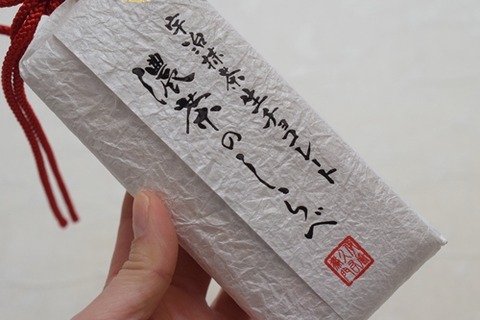 宇治抹茶生チョコレート
濃茶のしらべ